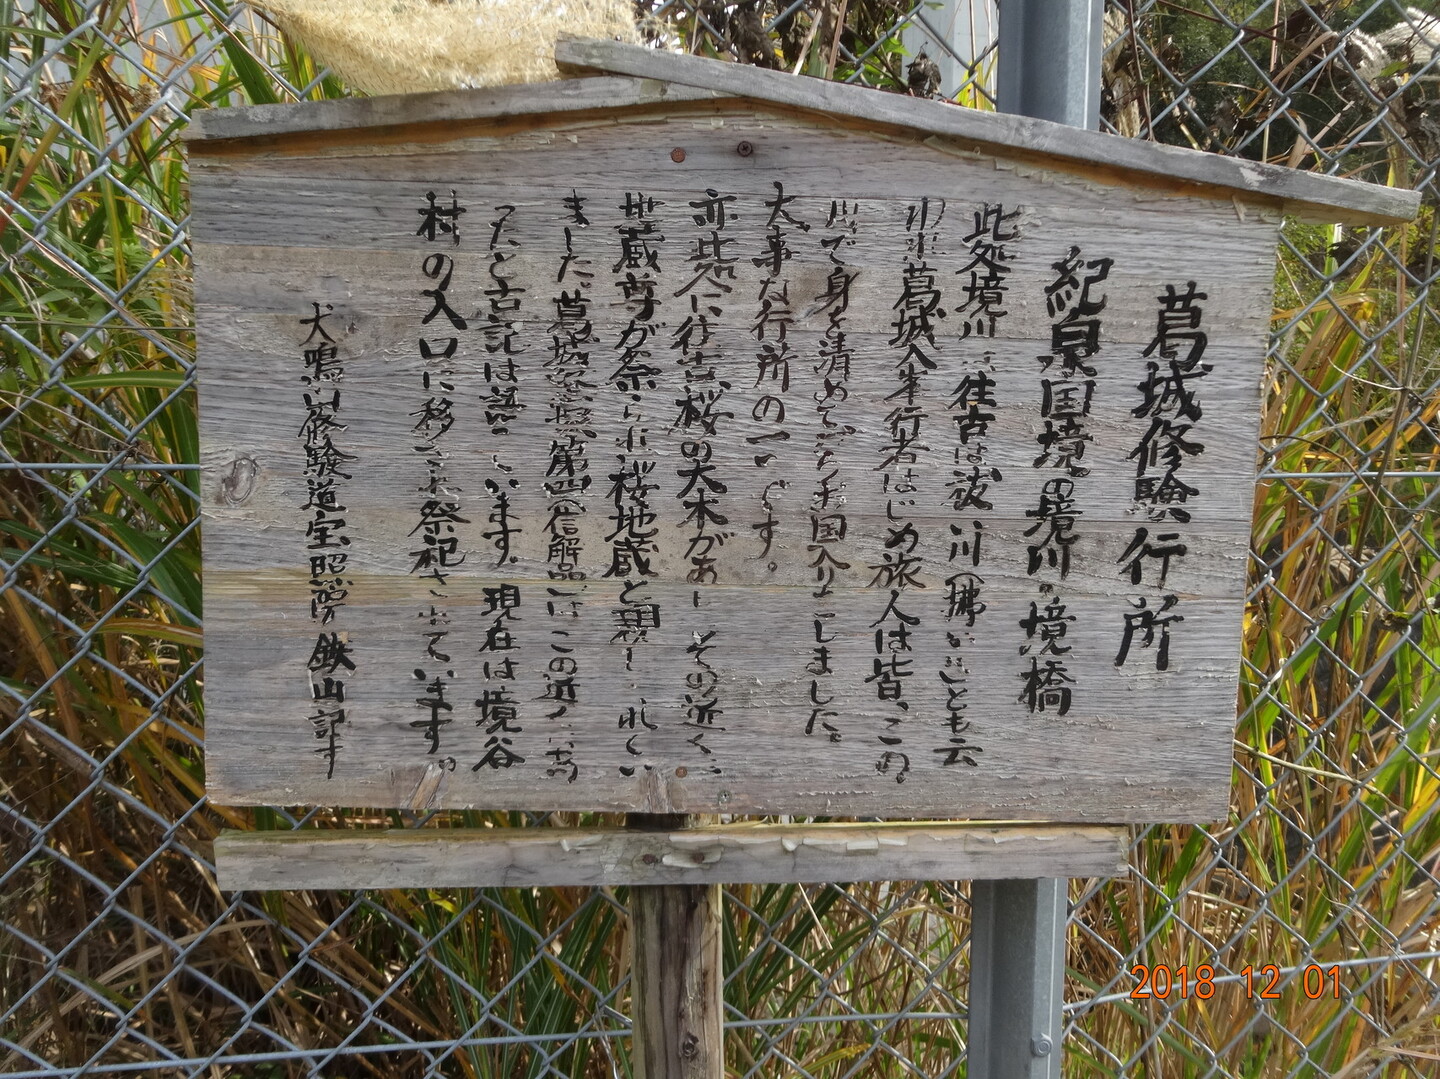 葛城修験行所
紀泉国境の境川・境橋
此処境川は往古は祓川(拂い)とも云
われ葛城入峯行者はじめ旅人は皆、この
川で身を清めて国入りしました。
大事な行所の一つです。
亦此処に往古桜の大木があり その近くに
地蔵尊が祭られ桜地蔵と親しまれてい
ました。葛城第四信解品はこの近くに
たと古記は語っています。現在は境谷
村の入口に移され祭祀されています。
犬鳴山修験道宝照院 鉄山記す
2018 12 01